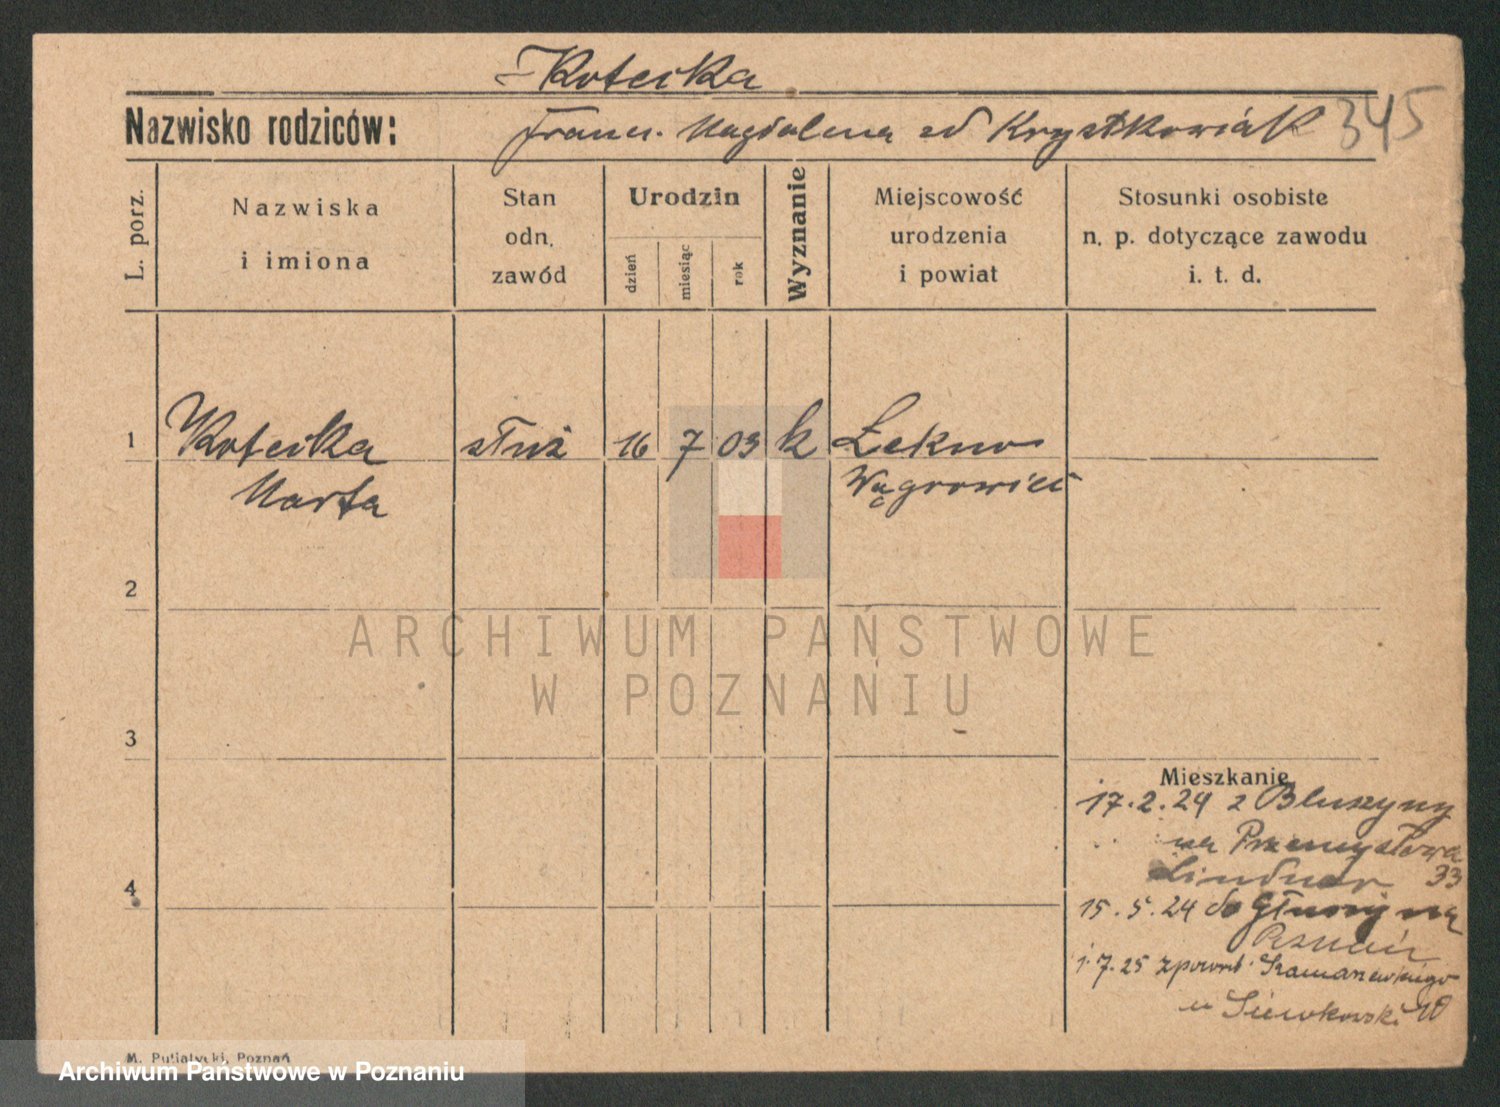 Koteika
Nazwisko rodziców: Franc. Magdalena zd Krystkowiak 345
L. porz.
Nazwiska
i imiona
Stan
odn.
zawód
Urodzin
dzień
miesiąc
rok
Wyznanie
Miejscowość
urodzenia
i powiat
Stosunki osobiste
n. p. dotyczące zawodu
i. t. d.
1 Koteika służ 16 7 03 k Łekno
Marta Wągrowiec
2
ARCHIWUM PAŃSTWOWE
W POZNANIU
3
Mieszkanie
17.2.24 z
na Przemysłowa
Lindner 33
4
15.5.24 do
1.7.25 z powrot
10
M. Putiatycki, Poznań
Archiwum Państwowe w Poznaniu